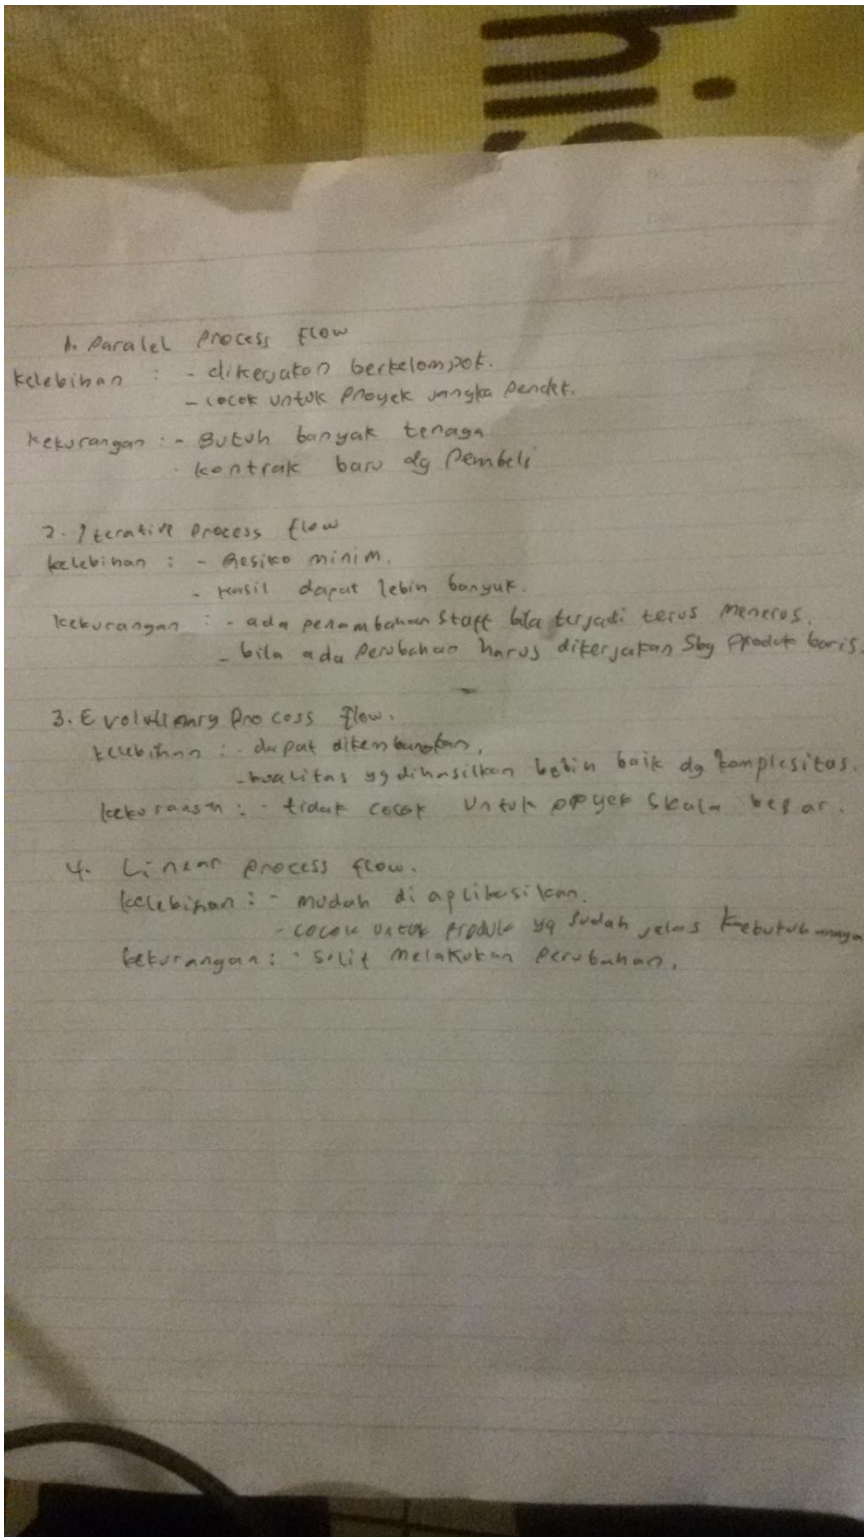 his
1. Paralel Process Flow
Kelebihan : - dikerjakan berkelompok.
- cocok untuk Proyek jangka Pendek.
Kekurangan : - Butuh banyak tenaga
- kontrak baru dg Pembeli
2. Iterative Process flow
kelebihan : - Resiko minim.
- Hasil dapat lebih banyak.
kekurangan : - ada penambahan Staff bila terjadi terus menerus.
- bila ada Perubahan harus dikerjakan Sbg Produk
3. Evolutionary Process flow.
kelebihan : - dapat dikembangkan,
- kualitas yg dihasilkan lebih baik dg komplesitas.
kekurangan : - tidak cocok untuk proyek Skala besar.
4. Linear process flow.
kelebihan : - mudah di aplikasikan.
- cocok untuk produk yg sudah jelas kebutuhannya
kekurangan : - sulit melakukan perubahan.